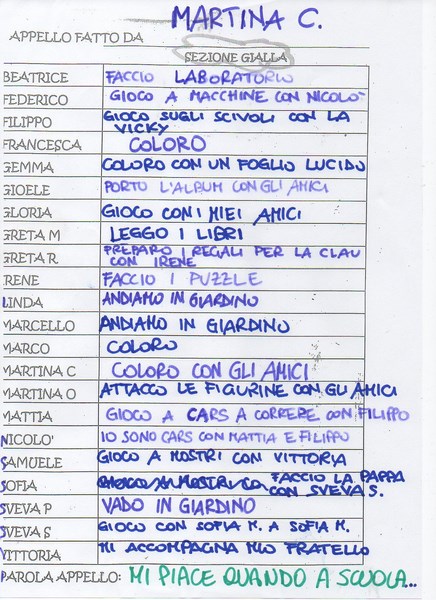 MARTINA C.
APPELLO FATTO DA
SEZIONE GIALLA
BEATRICE FACCIO LABORATORIO
FEDERICO GIOCO A MACCHINE CON NICOLO'
FILIPPO GIOCO SUGLI SCIVOLI CON LA
VICKY
FRANCESCA COLORO
GEMMA COLORO CON UN FOGLIO LUCIDO
GIOELE PORTO L'ALBUM CON GLI AMICI
GLORIA GIOCO CON I MIEI AMICI
GRETA M LEGGO I LIBRI
GRETA R PREPARO I REGALI PER LA CLAU
CON IRENE
IRENE FACCIO I PUZZLE
LINDA ANDIAMO IN GIARDINO
MARCELLO ANDIAMO IN GIARDINO
MARCO COLORO
MARTINA C COLORO CON GLI AMICI
MARTINA O ATTACCO LE FIGURINE CON GLI AMICI
MATTIA GIOCO A CARS A CORRERE CON FILIPPO
NICOLO' IO SONO CARS CON MATTIA E FILIPPO
SAMUELE GIOCO A MOSTRI CON VITTORIA
SOFIA FACCIO LA PAPPA
CON SVEVA S.
SVEVA P VADO IN GIARDINO
SVEVA S GIOCO CON SOFIA M. A SOFIA M.
VITTORIA MI ACCOMPAGNA MIO FRATELLO
PAROLA APPELLO: MI PIACE QUANDO A SCUOLA...